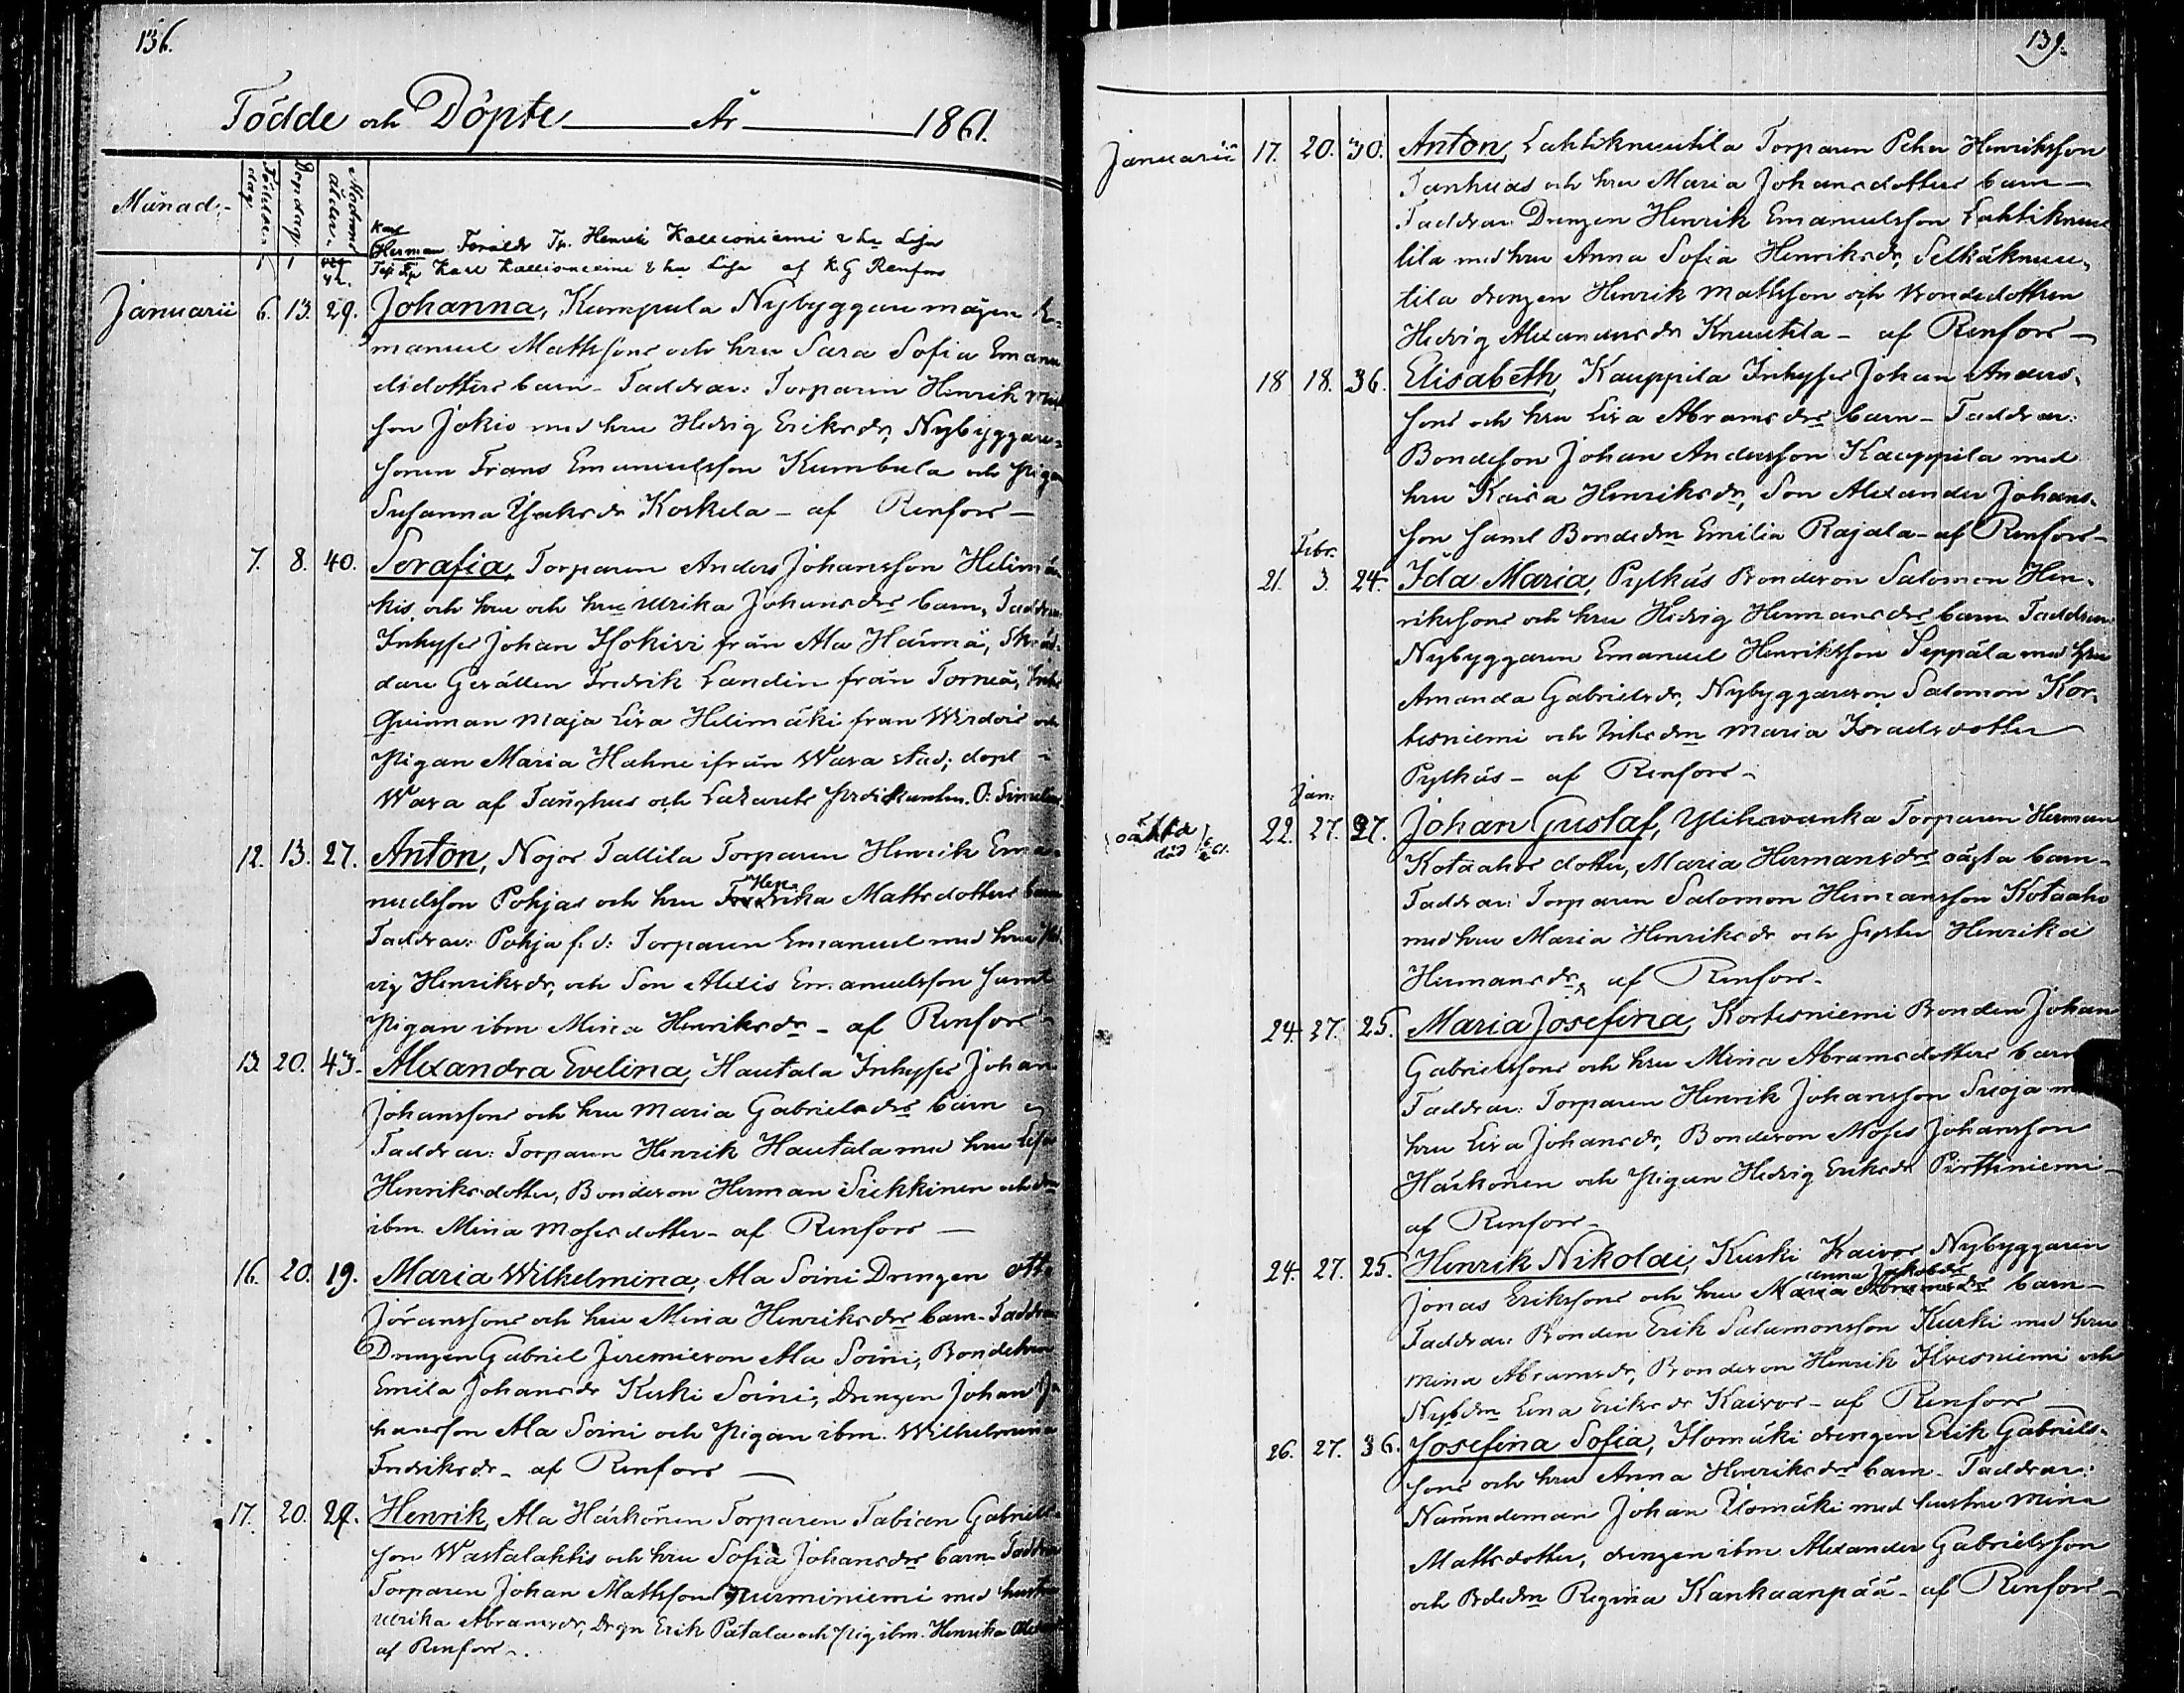 136.
Födde och Döpte År 1861.
Månad.
Födelse-dag.
Dopdag.
Modrens ålder.
Karl
Herman Föräldr Tp. Henrik Kallioniemi & hu Lisa
1 1 42. Karl Kallioniemi & hu Lisa af K G Renfors
Januarii 6. 13. 29. Johanna, Kumpula Nybyggaremågen E-
manuel Mathssons och hru Sara Sofia Emanu
elsdotters barn - Faddrar: Torparen Henrik
son Jokio med hru Hedvig Eriksdr, Nybyggare-
sonen Frans Emanuelsson Kumbula och Pigan
Susanna Isaksdr Koskela - af Renfors -
7. 8. 40. Serafia, Torparen Anders Johansson Helimä
kis och hru och hru Ulrika Johansdrs barn, Faddrar
Inhyses Johan Isokivi från Ala Härmä, Skräd-
dare Gesällen Fredrik Landin från Torneå, Inhs
Quinnan Maja Lisa Helimäki från Wirdois och
Pigan Maria Hahne ifrån Wasa stad; döpt i
Wasa af Fånghus och Lazaretts Predikanten O:
12. 13. 27. Anton, Nojos Tallila Torparen Henrik Ema-
nuelsson Pohjas och hru Hen
rika Mattsdotters barn
Faddrar: Pohja f. d: Torparen Emanuel med hru Hed
vig Henriksdr, och Son Alexis Emanuelsson samt
Pigan ibm Mina Henriksdr - af Renfors -
13. 20. 43. Alexandra Evelina, Hautala Inhyses Johan
Johanssons och hru Maria Gabrielsdrs barn -
Faddrar: Torparen Henrik Hautala med hru Lisa
Henriksdotter, Bondeson Herman Sikkinen och drn
ibm. Mina Mosesdotter - af Renfors -
16. 20. 19. Maria Wilhelmina, Ala Soini Drengen Otto
Jöranssons och hru Mina Henriksdrs barn - Faddrar
Drengen Gabriel Jeremieson Ala Soini, Bondehru
Emila Johansdr Keski Soini, Drengen Johan Jo
hansson Ala Soini och Pigan ibm. Wilhelmina
Fredriksdr - af Renfors -
17. 20. 29. Henrik, Ala Härkönen Torparen Fabian Gabriels-
son Wastalahtis och hru Sofia Johansdrs barn Faddrar
Torparen Johan Mathsson Nurminiemi med hustru
Ulrika Abramsdr, Drgn Erik Pätala och Pig ibm. Henrika
af Renfors -.
139.
Januarii 17. 20. 30. Anton, Lahtiknuutila Torparen Peter Henriksson
Tanhuas och hru Maria Johansdotters barn -
Faddrar Drengen Henrik Emanuelsson Lahtiknuu
tila med hru Anna Sofia Henriksdr, Selkäknuu-
tila drengen Henrik Mattsson och Bondedottren
Hedvig Alexandersdr Knuutila - af Renfors -
18 18. 36. Elisabeth, Kauppila Inhyses Johan Anders-
sons och hru Lisa Abramsdrs barn - Faddrar:
Bondeson Johan Andersson Kauppila med
hru Kaisa Henriksdr, Son Alexander Johans-
son samt Bondedrn Emilia Rajala - af Renfors -
Febr.
21. 3. 24. Ida Maria, Pylkäs Bondeson Salomon Hen-
rikssons och hru Hedvig Hermansdrs barn Faddrar
Nybyggaren Emanuel Henriksson Seppälä med hru
Amanda Gabrielsdr, Nybyggareson Salomon Kor-
tesniemi och Inhs drn Maria Israelsdotter
Pylkäs - af Renfors -
Jan.
oäkta
död
22. 27. 27. Johan Gustaf, Ylihavanka Torparen Herman
Kotaahos dotter, Maria Hermansdrs oägta barn -
Faddrar: Torparen Salomon Hermansson Kotaaho
med hru Maria Henriksdr och syster Henrika
Hermansdr, af Renfors -
24. 27. 25. Maria Josefina, Kortesniemi Bonden Johan
Gabrielssons och hru Mina Abramsdotters barn
Faddrar: Torparen Henrik Johansson Suoja
hru Lisa Johansdr, Bondeson Moses Johansson
Härkönen och Pigan Hedvig Eriksdr Pirttiniemi -
af Renfors -
24. 27. 25. Henrik Nikolai, Kurki Kaivos Nybyggaren
Anna Jakobsdrs
Jonas Erikssons och hru Maria Abramsdrs barn -
Faddrar: Bonden Erik Salamonsson Kurki med hru
Mina Abramsdr, Bondeson Henrik Ilvesniemi och
Nyb drn Lena Eriksdr Kaivos - af Renfors -
26. 27. 36. Josefina Sofia, Ilomäki drengen Erik Gabriels-
sons och hru Anna Henriksdrs barn - Faddrar:
Nämndeman Johan Ilomäki med hustru Mina
Mattsdotter, drengen ibm Alexander Gabrielsson
och Bdedrn Regina Kankaanpää - af Renfors -